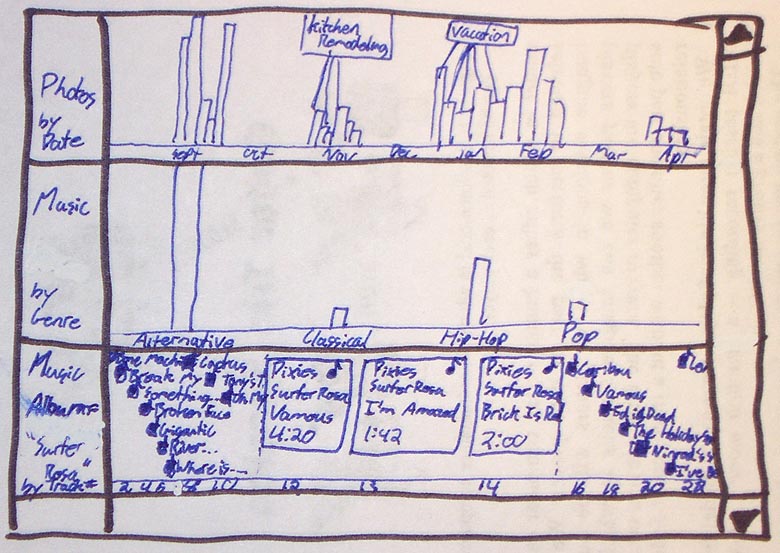 Photos
by
Date
Kitchen
Remodeling
Vacation
Sept Oct Nov Dec Jan Feb Mar Apr
Music
by
Genre
Alternative Classical Hip-Hop Pop
Music
Albums
"Surfer
Rosa"
by Track#
Bone Machine
Break My
Something...
Broken Face
Gigantic
River...
Where is---
Cactus
Tony's T
Oh My
Pixies
Surfer Rosa
Vamous
4:20
Pixies
Surfer Rosa
I'm Amazed
1:42
Pixies
Surfer Rosa
Brick Is Re
2:00
Caribou
Vamous
Ed is Dead
The Holiday
Nimrod's
I've Be
2 4 10 12 13 14 16 18 20 28